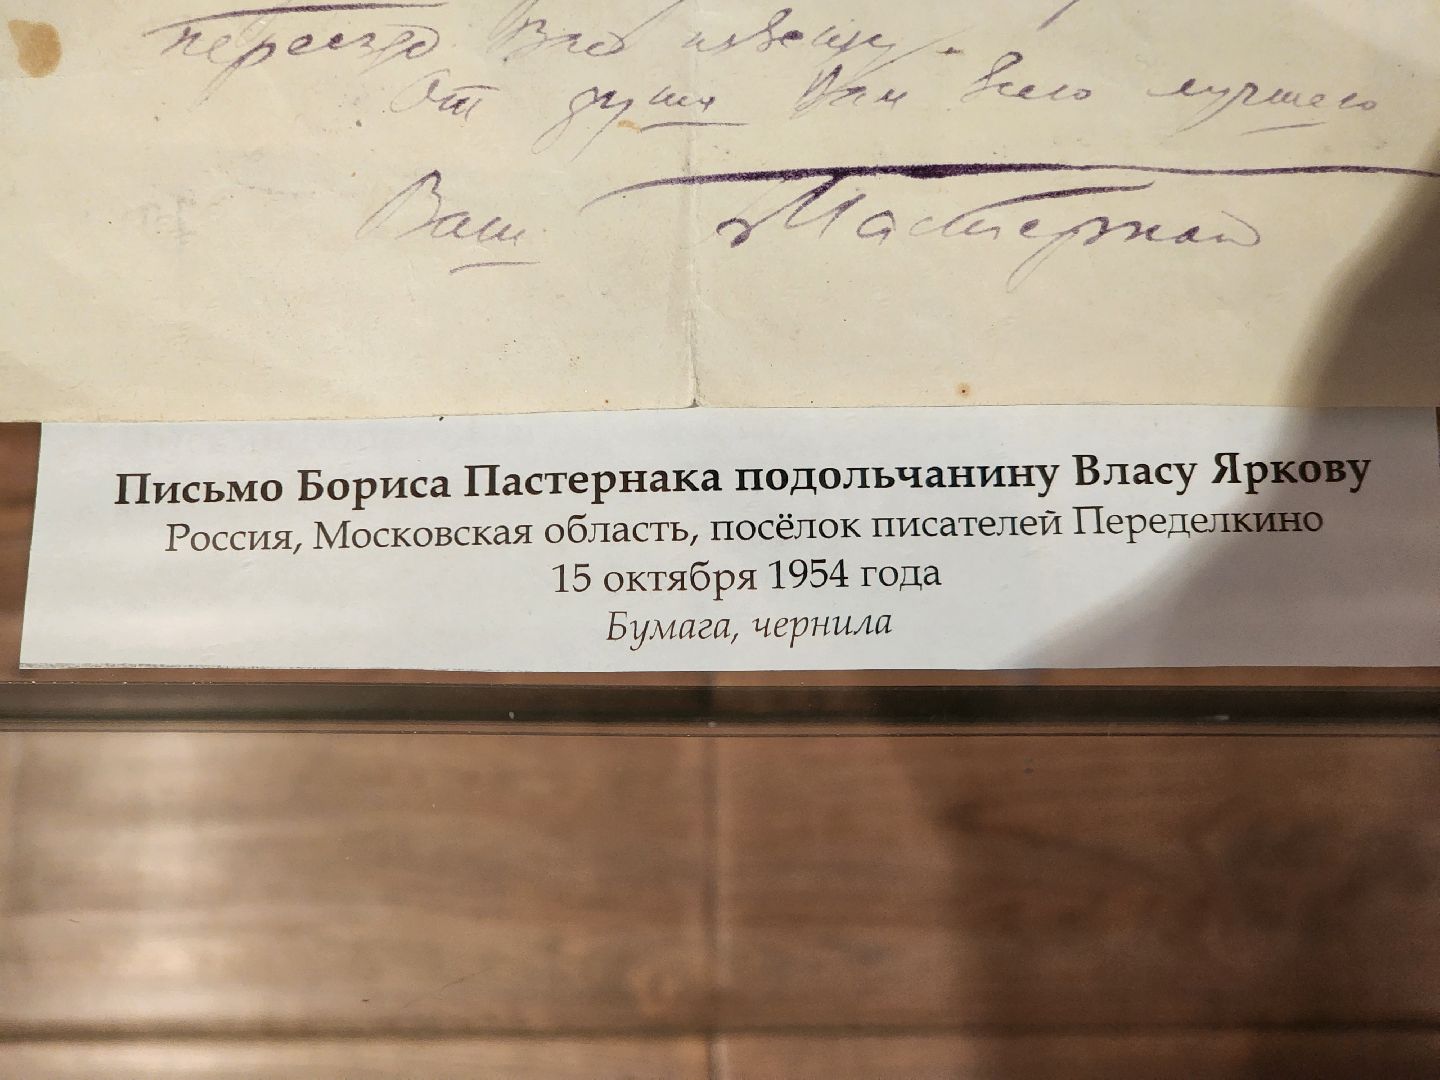 переезде Вас извещу.
От души Вам всего лучшего
Ваш Б Пастернак
Письмо Бориса Пастернака подольчанину Власу Яркову
Россия, Московская область, посёлок писателей Переделкино
15 октября 1954 года
Бумага, чернила